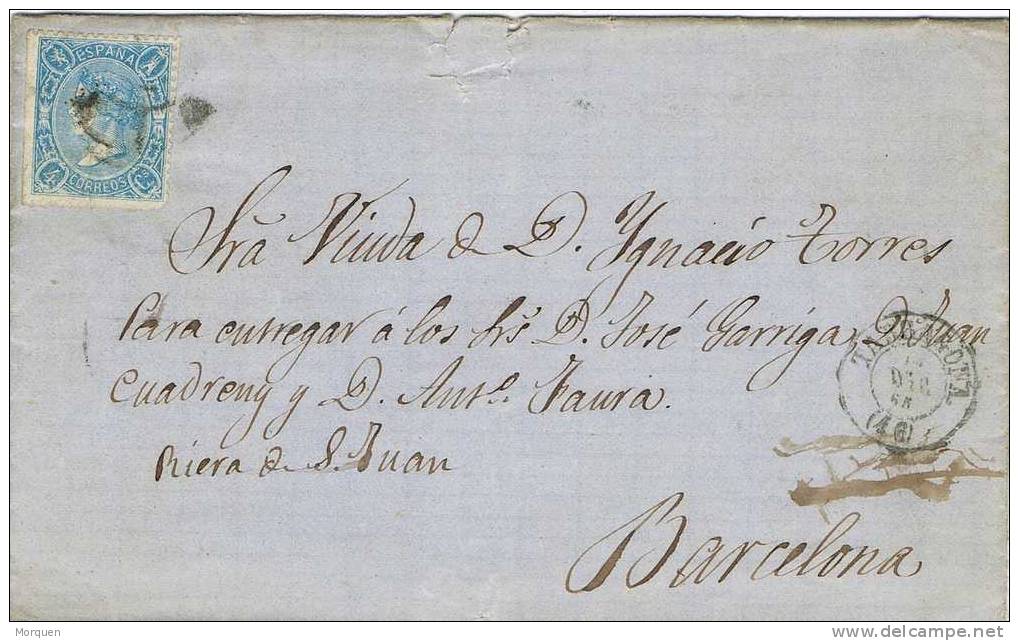 ESPAÑA
4 CORREOS Cs
Sra Viuda de D. Ygnacio Torres
Para entregar á los Srs D. José Garriga, D. Juan
Cuadreny y D. Anto. Faura.
Riera de S. Juan
TARRAGONA
DIC
(46)
Barcelona
Morquen
delcampe.net